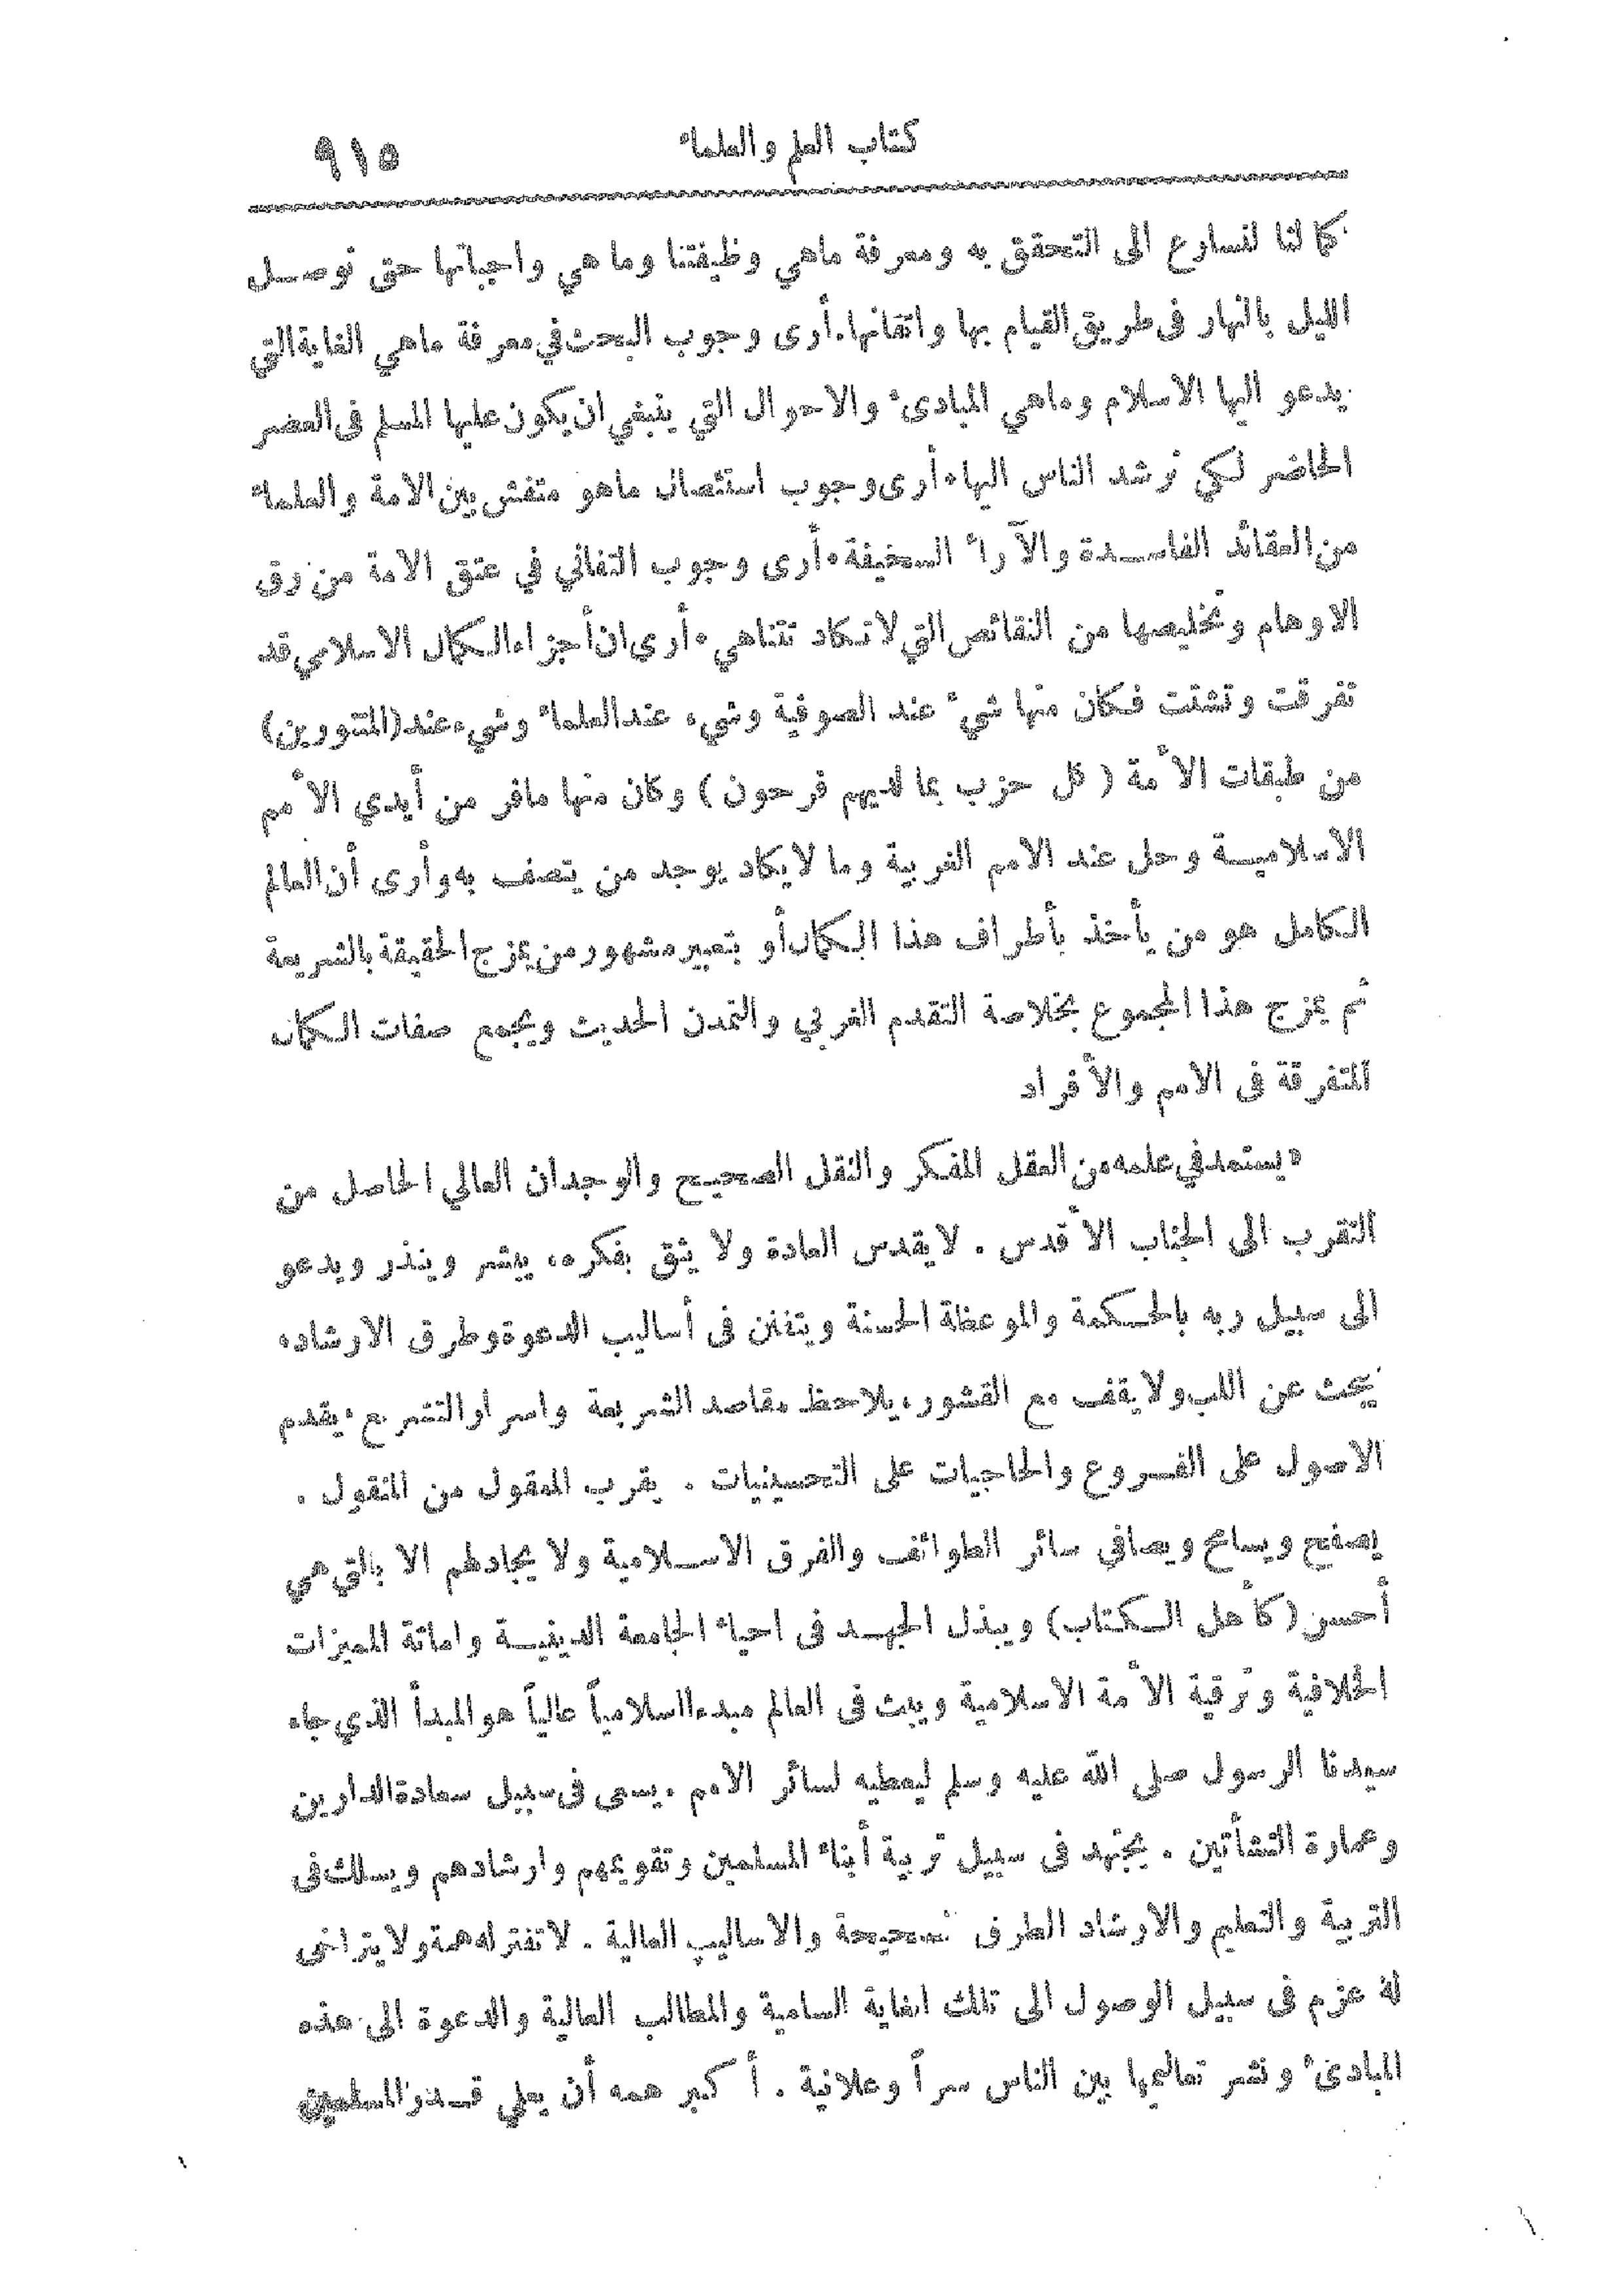 كتاب العلم والعلماء ٩١٥
كمالنا لنسارع الى التحقق به ومعرفة ماهي وظيفتنا وما هي واجباتها حتى نوصل
الليل بالنهار فى طريق القيام بها واتقانها. أرى وجوب البحث في معرفة ماهي الغاية التي
يدعو اليها الاسلام وماهي المبادئ والاحوال التي ينبغي ان يكون عليها المسلم فى العصر
الحاضر لكي نرشد الناس اليها. أرى وجوب استئصال ماهو متفش بين الامة والعلماء
من العقائد الفاسدة والآراء السخيفة. أرى وجوب التفاني في عتق الامة من رق
الاوهام وتخليصها من النقائص التي لا تكاد تتناهي. أرى ان أجزاء الكمال الاسلامي قد
تفرقت وتشتت فكان منها شيء عند الصوفية وشيء عند العلماء وشيء عند (المتنورين)
من طبقات الأمة ( كل حزب بما لديهم فرحون ) وكان منها مافر من أيدي الأمم
الاسلامية وحل عند الامم الغربية وما لا يكاد يوجد من يتصف به وأرى أن العالم
الكامل هو من يأخذ بأطراف هذا الكمال أو بتعبير مشهور من يمزج الحقيقة بالشريعة
ثم يمزج هذا المجموع بخلاصة التقدم الغربي والتمدن الحديث ويجمع صفات الكمال
المتفرقة فى الامم والأفراد
«يستمد في علمه من العقل المفكر والنقل الصحيح والوجدان العالي الحاصل من
التقرب الى الجناب الأقدس . لا يقدس العادة ولا يثق بفكره، يبشر وينذر ويدعو
الى سبيل ربه بالحكمة والموعظة الحسنة ويتفنن فى أساليب الدعوة وطرق الارشاد.
يبحث عن اللب ولا يقف مع القشور، يلاحظ مقاصد الشريعة واسرار التشريع. يقدم
الاصول على الفروع والحاجيات على التحسينيات . يقرب المعقول من المنقول .
يصفح ويسامح ويصافي سائر الطوائف والفرق الاسلامية ولا يجادلهم الا بالتي هي
أحسن (كأهل الكتاب) ويبذل الجهد فى احياء الجامعة الدينية واماتة المميزات
الخلافية وترقية الأمة الاسلامية ويبث فى العالم مبدءا اسلامياً عالياً هو المبدأ الذي جاء
سيدنا الرسول صلى الله عليه وسلم ليعطيه لسائر الامم . يسعى فى سبيل سعادة الدارين
وعمارة النشأتين . يجتهد فى سبيل تربية أبناء المسلمين وتقويمهم وارشادهم ويسلك فى
التربية والتعليم والارشاد الطرق الصحيحة والاساليب العالية . لا تفتر له همة ولا يتراخى
له عزم فى سبيل الوصول الى تلك الغاية السامية والمطالب العالية والدعوة الى هذه
المبادئ ونشر تعاليمها بين الناس سراً وعلانية . أكبر همه أن يعلي قدر المسلمين